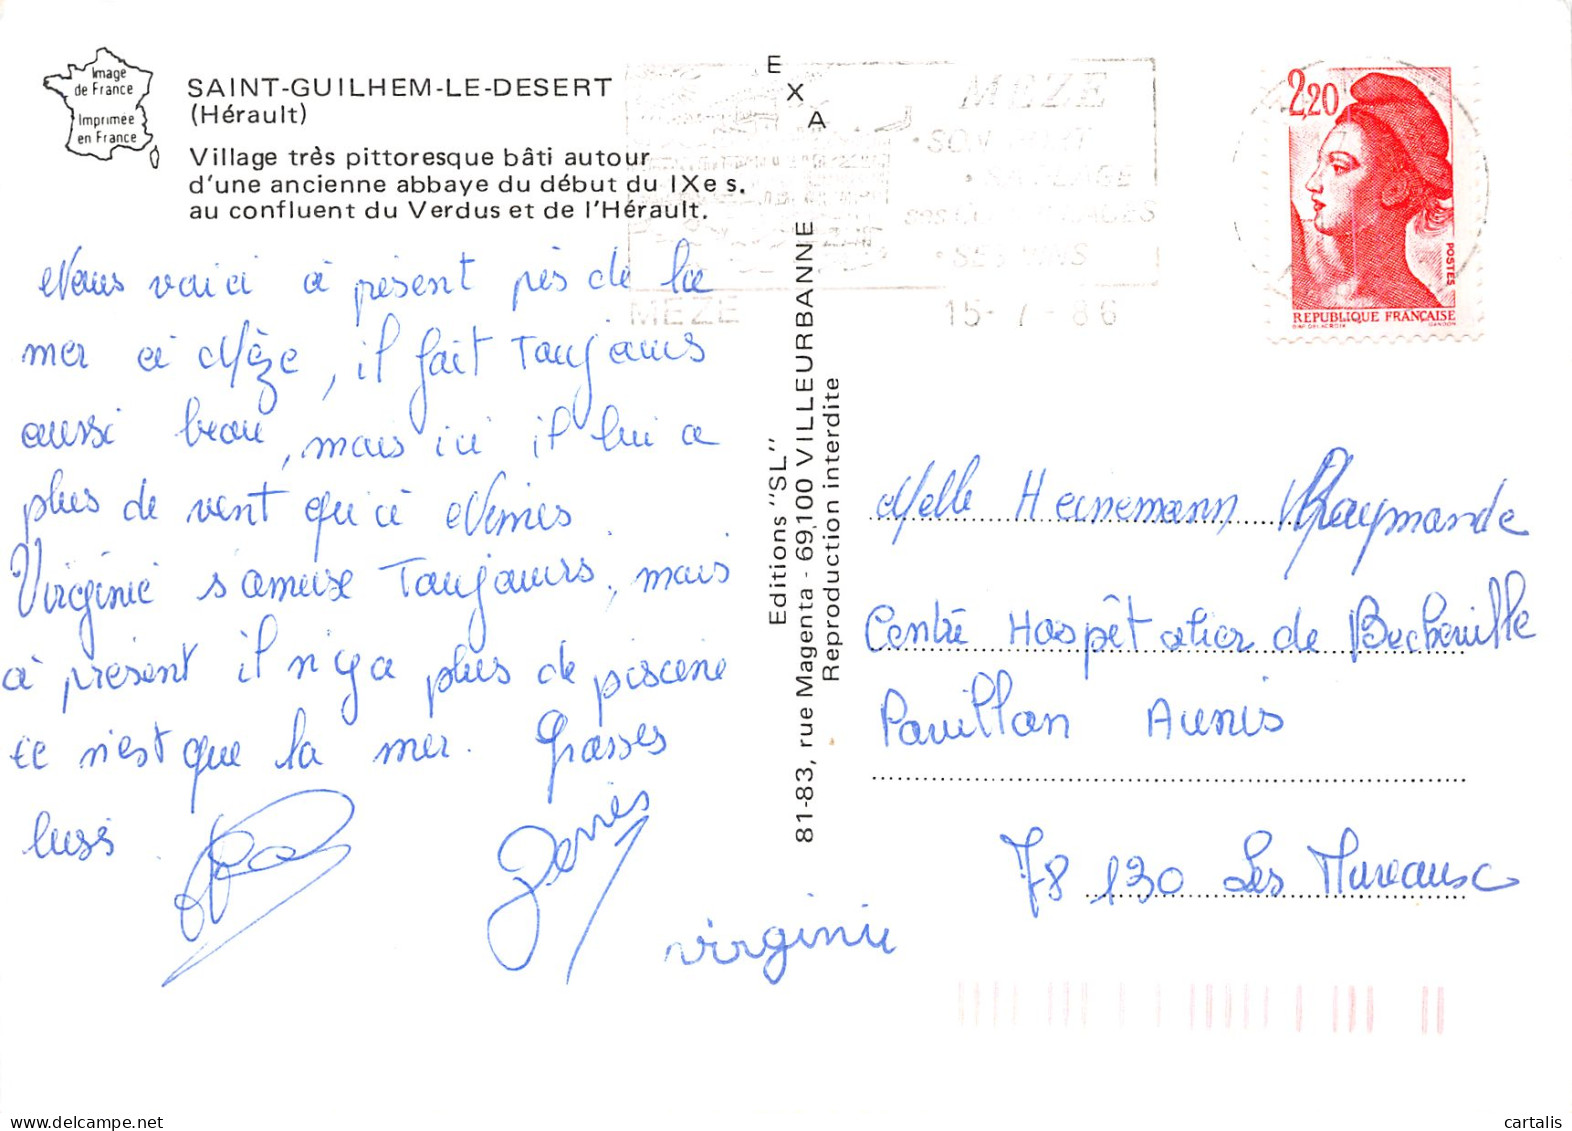 Image
de France
Imprimée
en France
SAINT-GUILHEM-LE-DESERT
(Hérault)
Village très pittoresque bâti autour
d'une ancienne abbaye du début du IXe s.
au confluent du Verdus et de l'Hérault.
Nous voici à présent près de la
mer à Mèze, il fait Toujours
aussi beau, mais ici il lui a
plus de vent qu'à Nîmes.
Virginie s'amuse Toujours, mais
à présent il n'y a plus de piscine
ce n'est que la mer. Grosses
bises.
Denis
virginie
EXA
Editions "SL"
81-83, rue Magenta - 69,100 VILLEURBANNE
Reproduction interdite
MEZE
• SON PORT
• SA PLAGE
ses COQUILLAGES
• SES VINS
MEZE
15-7-86
2,20
POSTES
REPUBLIQUE FRANÇAISE
D'AP. DELACROIX GANDON
Melle Heinemann Raymonde
Centre Hospitalier de Becheville
Pavillon Aunis
78 130 Les Mureaux
cartalis